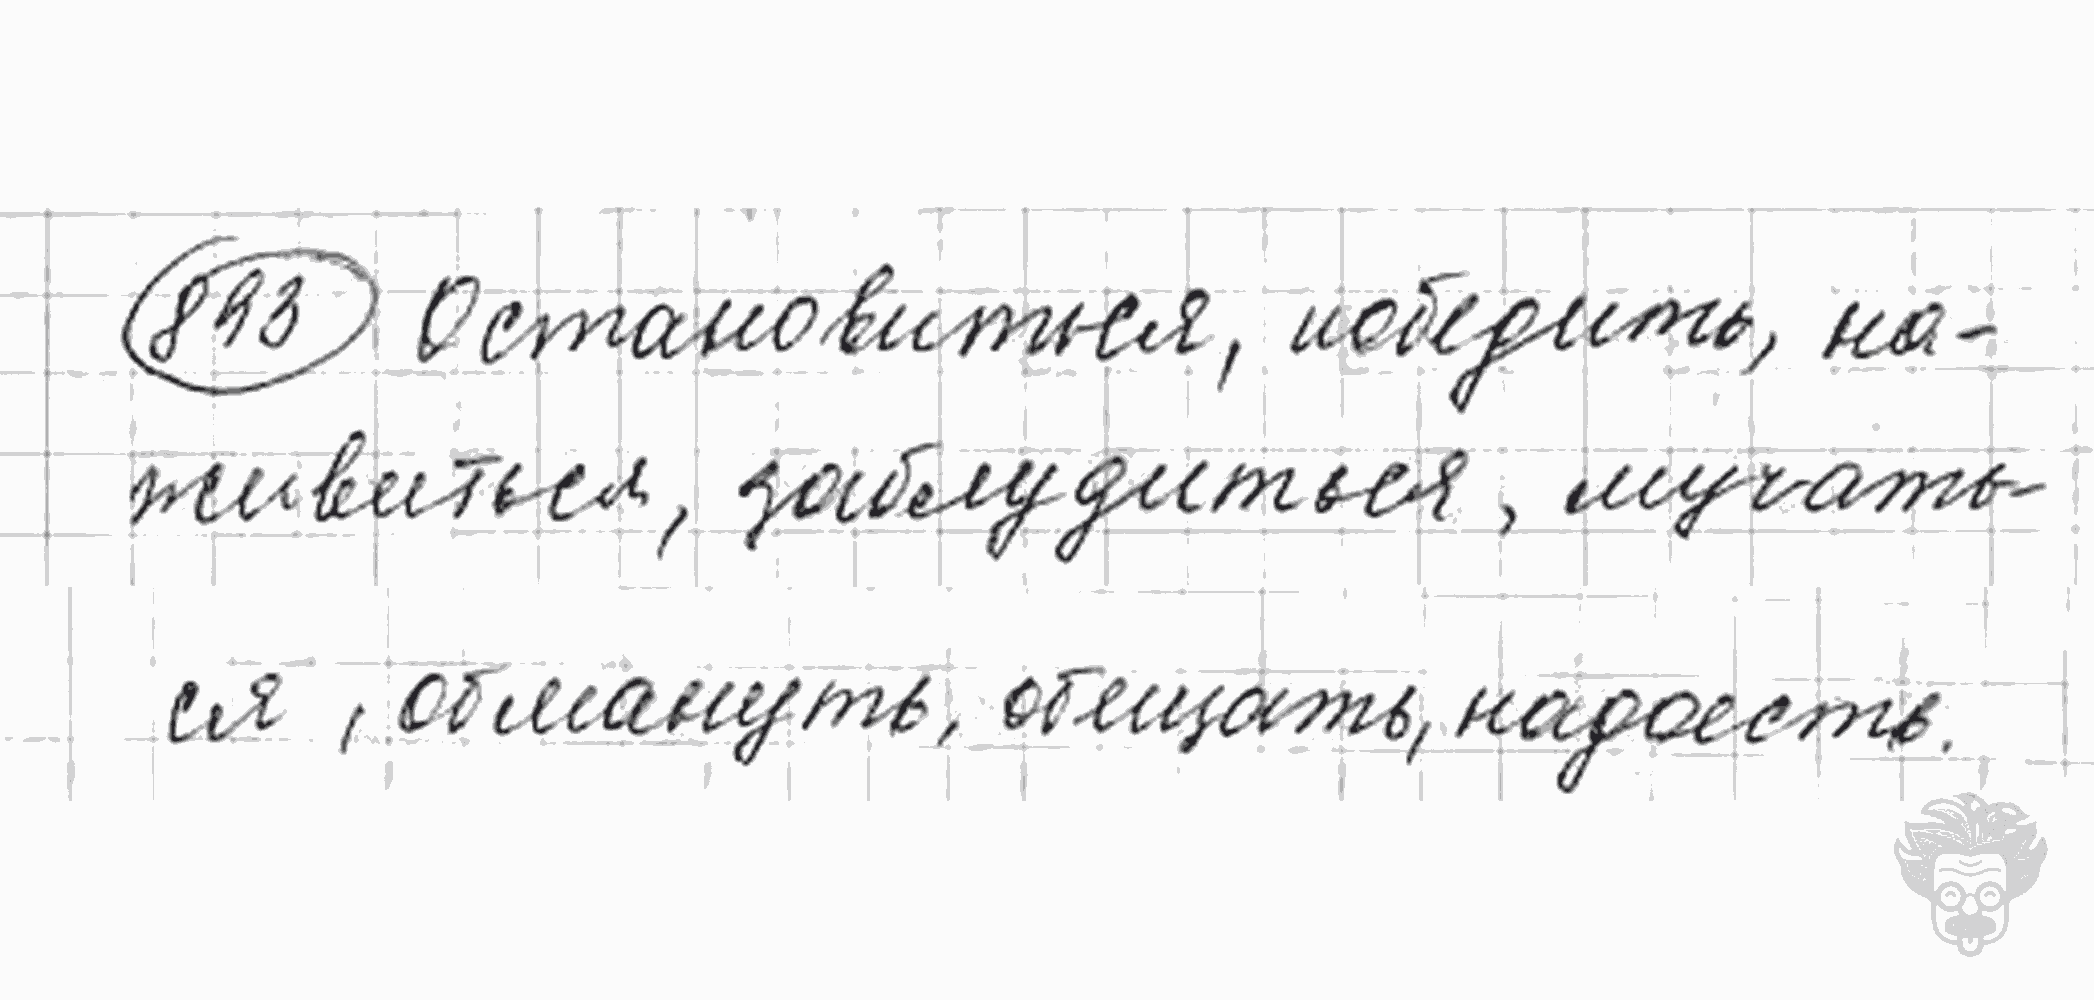 893 Остановиться, победить, на-
живиться, заблудиться, мучать-
ся, обмануть, обещать, надоесть.